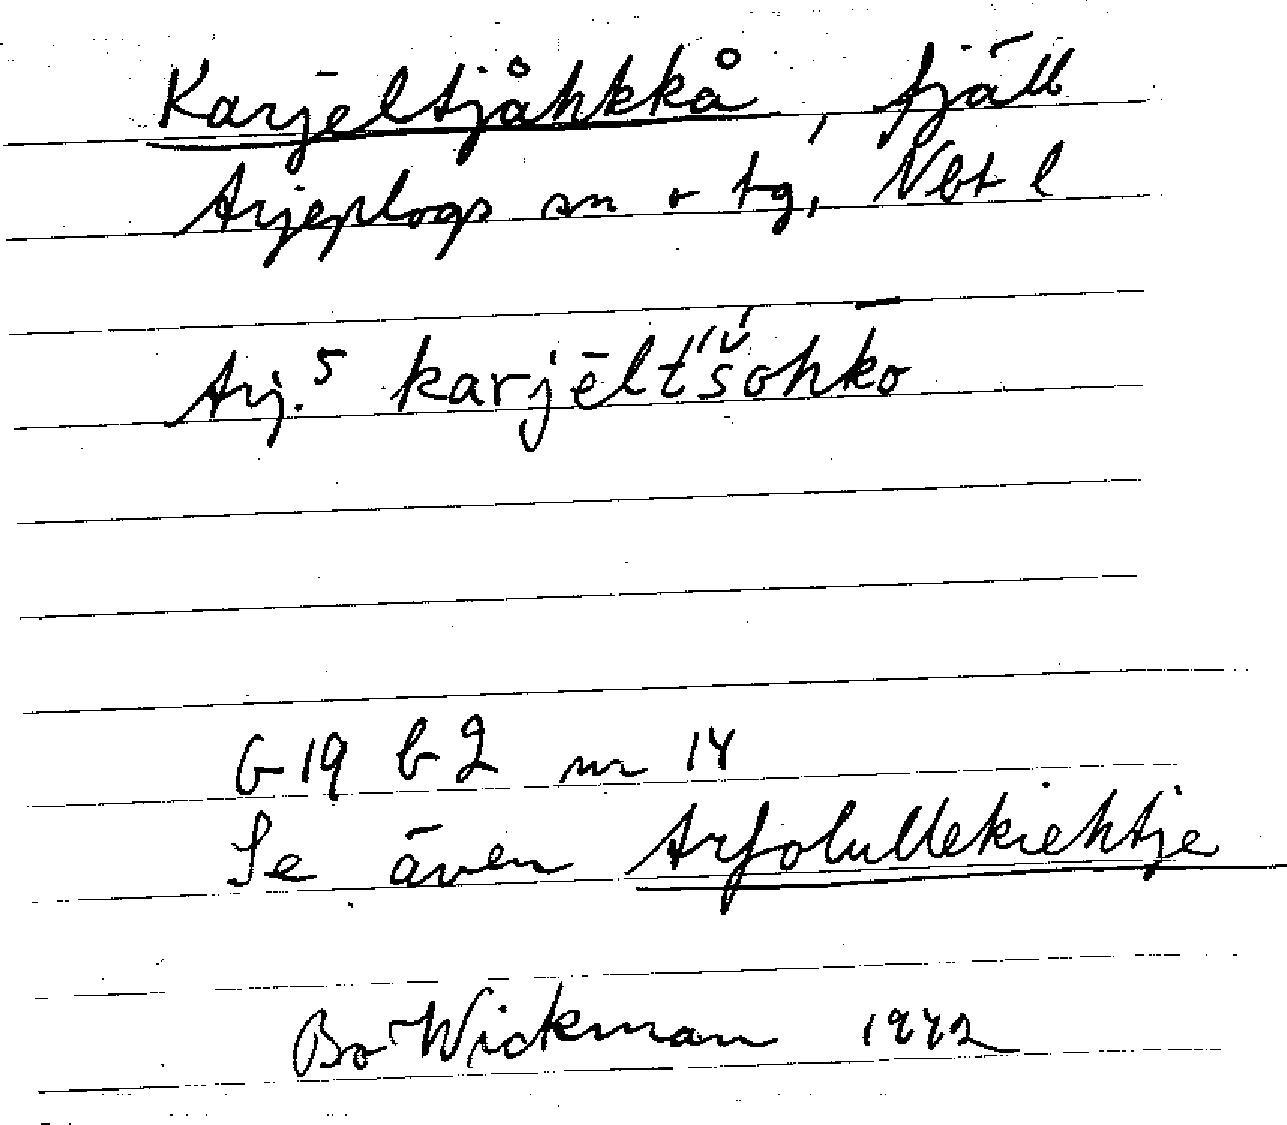 Karjeltjåhkkå, fjäll
Arjeplogs sn o tg, Nbt l
Arj.⁵ karjēltšohko
G 19 b 2 nr 14
Se även Arfolullekiehtje
Bo Wickman 1942